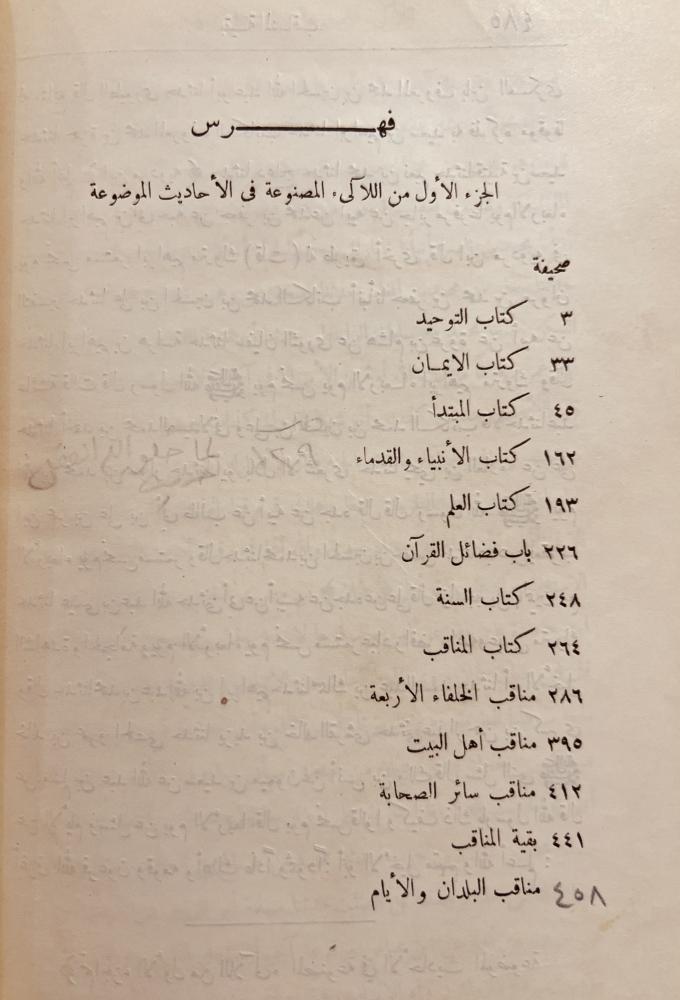 فهـرس
الجزء الأول من اللآلىء المصنوعة فى الأحاديث الموضوعة
صحيفة
٣ كتاب التوحيد
٣٣ كتاب الايمـان
٤٥ كتاب المبتدأ
١٦٢ كتاب الأنبياء والقدماء
١٩٣ كتاب العلم
٢٢٦ باب فضائل القرآن
٢٤٨ كتاب السنة
٢٦٤ كتاب المناقب
٢٨٦ مناقب الخلفاء الأربعة
٣٩٥ مناقب أهل البيت
٤١٢ مناقب سائر الصحابة
٤٤١ بقية المناقب
٤٥٨ مناقب البلدان والأيام